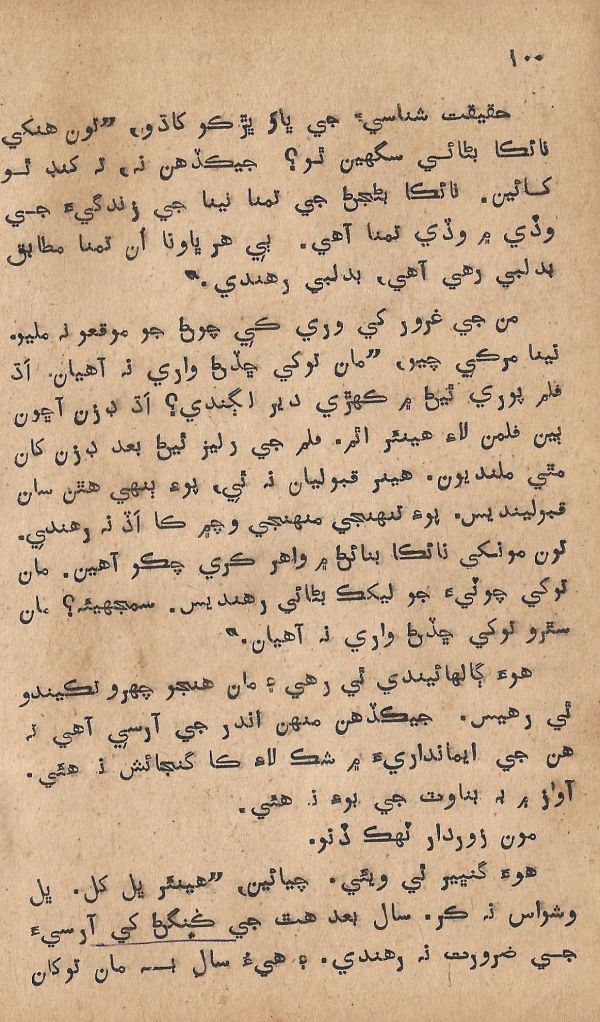 ۱۰۰
حقيقت شناسيءَ جي ڀاوَ ڀڙڪو کاڌو، ”تون هنکي
نائڪا بڻائي سگهين ٿو؟ جيڪڏهن نہ، تہ ڪنڊ ٿو
کائين. نائڪا بڻجڻ جي تمنا نينا جي زندگيءَ جي
وڏي ۾ وڏي تمنا آهي. ٻي هر ڀاونا اُن تمنا مطابق
بدلبي رهي آهي، بدلبي رهندي.“
من جي غرور کي وري ڪي چوڻ جو موقعو نہ مليو.
نينا مرڪي چيو، ”مان توکي ڇڏڻ واري نہ آهيان. اَڌ
فلم پوري ٿيڻ ۾ ڪهڙي دير لڳندي؟ اَڌ ڊزن آڇون
ٻين فلمن لاءِ هينئر اٿم. فلم جي رليز ٿيڻ بعد ڊزن کان
مٿي ملنديون. هينر قبوليان نہ ٿي، پوءِ ٻنهي هٿن سان
قبولينديس. پوءِ تنهنجي منهنجي وچ ۾ ڪا اَڏ نہ رهندي.
تون مونکي نائڪا بنائڻ ۾ واهر ڪري چڪو آهين. مان
توکي چوٽيءَ جو ليکڪ بڻائي رهنديس. سمجهيئہ؟ مان
سڌرو توکي ڇڏڻ واري نہ آهيان.“
هوءَ ڳالهائيندي ٿي رهي ۽ مان هنجو چهرو تڪيندو
ٿي رهيس. جيڪڏهن منهن اندر جي آرسي آهي تہ
هن جي ايمانداريءَ ۾ شڪ لاءِ ڪا گنجائش نہ هئي.
آواز ۾ بہ بناوت جي بوءِ نہ هئي.
مون زوردار ٽهڪ ڏنو.
هوءَ گنڀير ٿي ويئي. چيائين، ”هينئر ڀل کل. ڀل
وشواس نہ ڪر. سال بعد هٿ جي ڪنگڻ کي آرسيءَ
جي ضرورت نہ رهندي. ۽ هيءُ سال — مان توکان